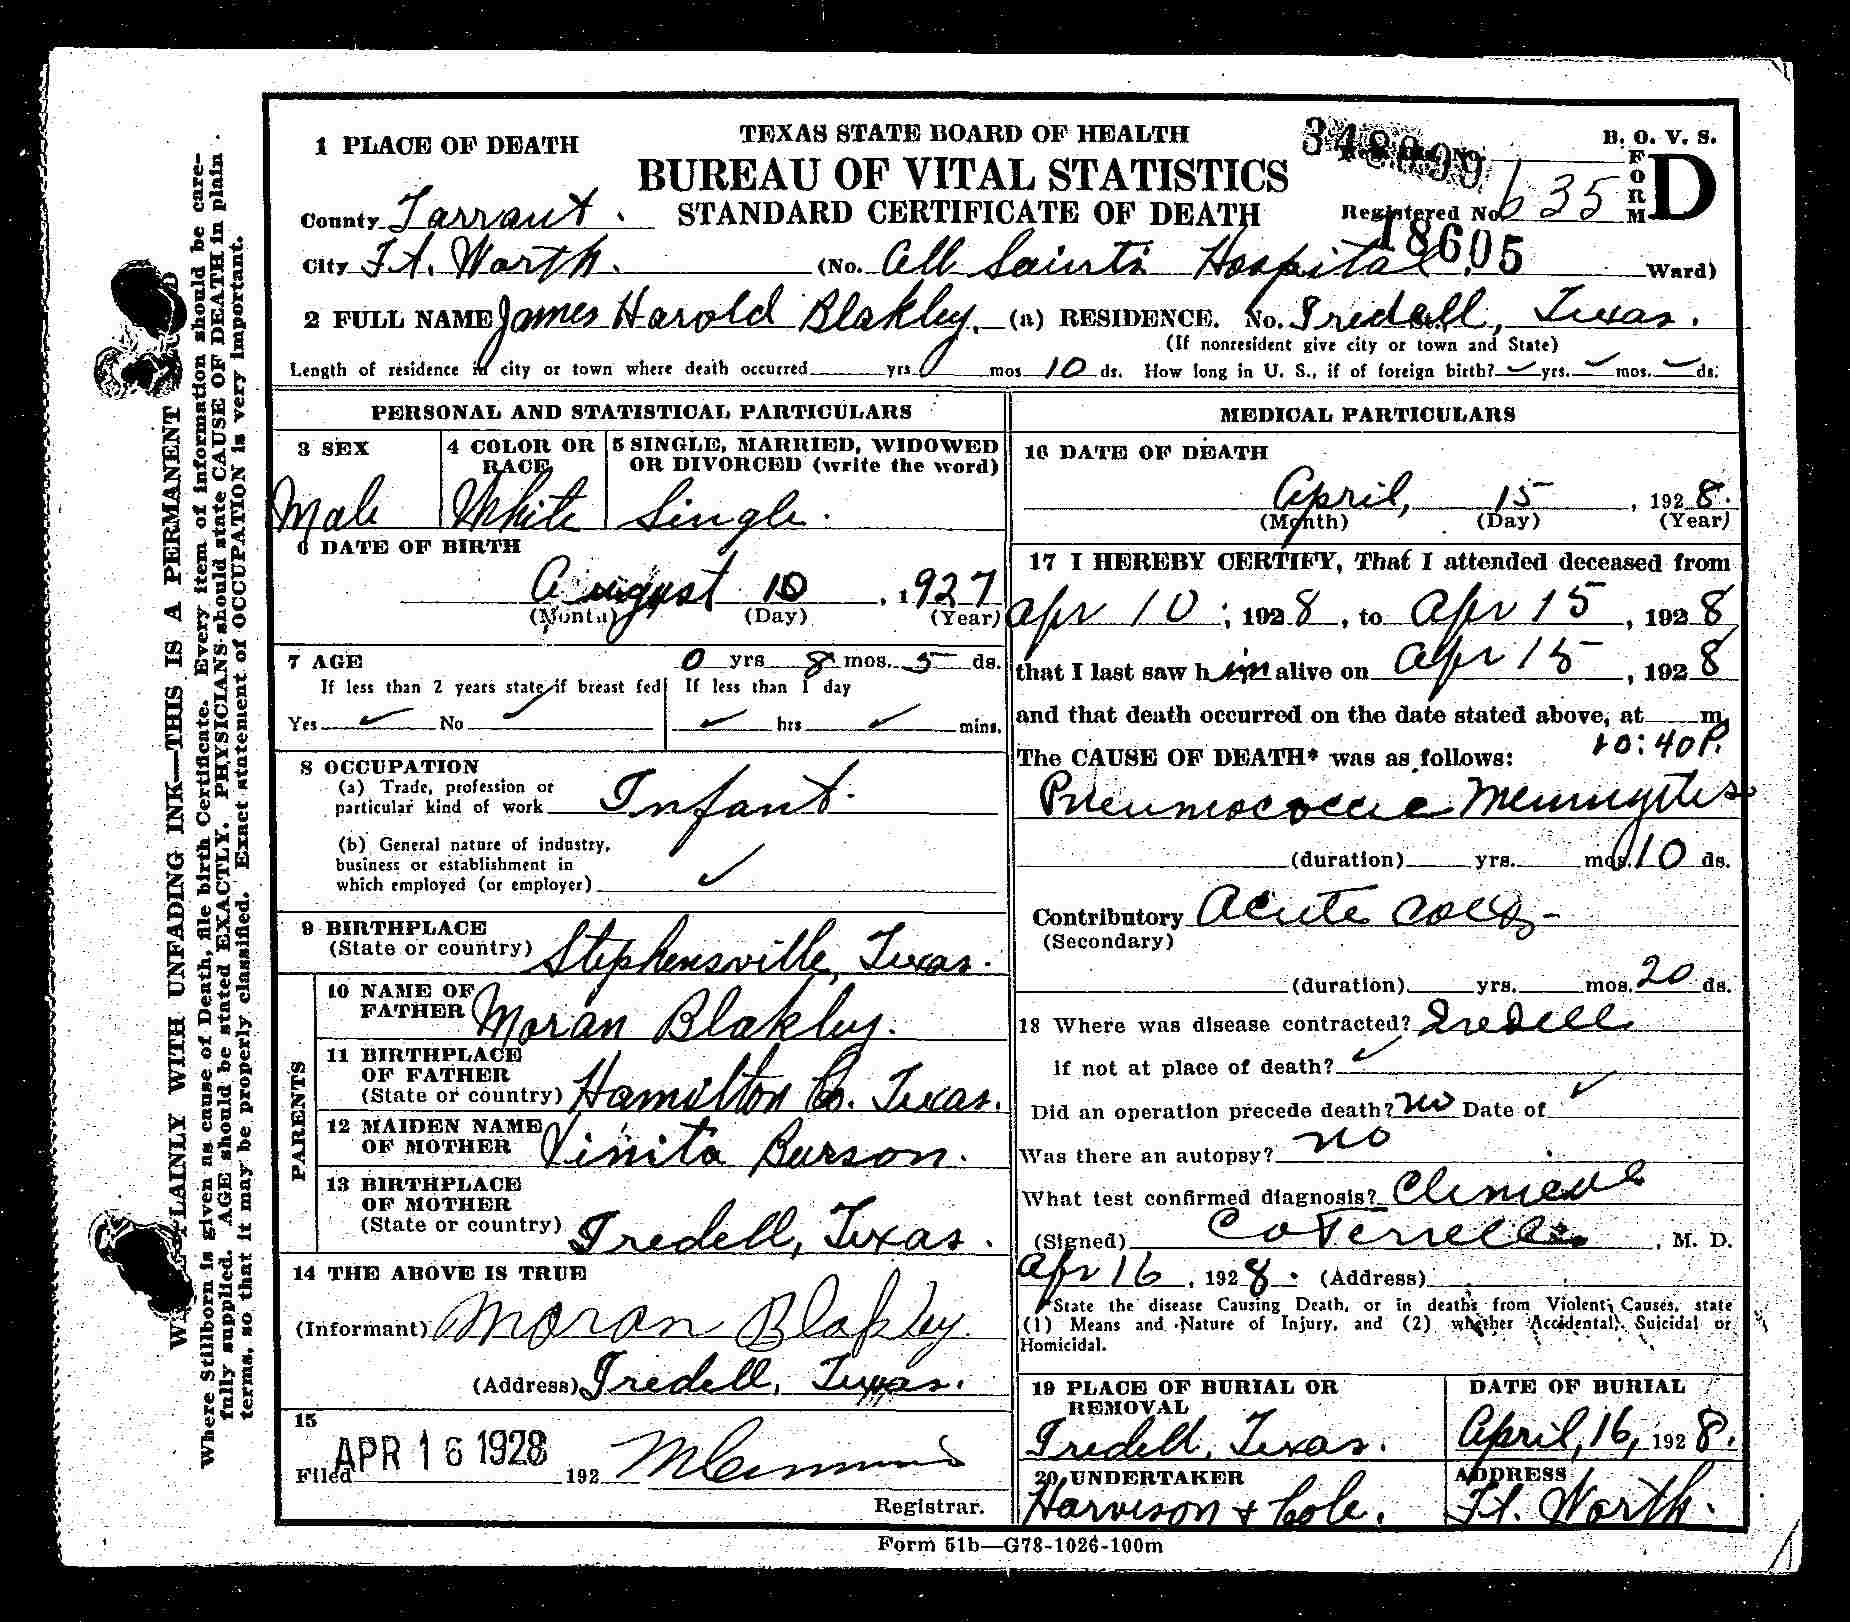 TEXAS STATE BOARD OF HEALTH
BUREAU OF VITAL STATISTICS
STANDARD CERTIFICATE OF DEATH
B. O. V. S.
FORM D
1 PLACE OF DEATH
County Tarrant.
Registered No. 635
18605
City Ft. Worth. (No. All Saints Hospital. Ward)
2 FULL NAME James Harold Blakley. (a) RESIDENCE. No. Iredell, Texas.
(If nonresident give city or town and State)
Length of residence in city or town where death occurred yrs. 0 mos. 10 ds. How long in U. S., if of foreign birth? ✓ yrs. ✓ mos. ✓ ds.
PERSONAL AND STATISTICAL PARTICULARS
3 SEX
Male
4 COLOR OR RACE
White
5 SINGLE, MARRIED, WIDOWED
OR DIVORCED (write the word)
Single.
6 DATE OF BIRTH
August 10, 1927
(Month) (Day) (Year)
7 AGE 0 yrs 8 mos. 5 ds.
If less than 2 years state if breast fed
Yes ✓ No ✓
If less than 1 day
✓ hrs ✓ mins.
8 OCCUPATION
(a) Trade, profession or
particular kind of work Infant.
(b) General nature of industry,
business or establishment in
which employed (or employer) ✓
9 BIRTHPLACE
(State or country) Stephensville, Texas.
PARENTS
10 NAME OF
FATHER Moran Blakley.
11 BIRTHPLACE
OF FATHER
(State or country) Hamilton Co. Texas.
12 MAIDEN NAME
OF MOTHER Vinita Burson.
13 BIRTHPLACE
OF MOTHER
(State or country) Iredell, Texas.
14 THE ABOVE IS TRUE
(Informant) Moran Blakley.
(Address) Iredell, Texas.
15
Filed APR 16 1928 192
Registrar.
MEDICAL PARTICULARS
16 DATE OF DEATH
April, 15, 1928.
(Month) (Day) (Year)
17 I HEREBY CERTIFY, That I attended deceased from
Apr 10, 1928, to Apr 15, 1928
that I last saw him alive on Apr 15, 1928
and that death occurred on the date stated above, at m.
10:40P.
The CAUSE OF DEATH* was as follows:
Pneumococcic Meningitis
(duration) yrs. mos. 10 ds.
Contributory Acute
(Secondary)
(duration) yrs. mos. 20 ds.
18 Where was disease contracted? Iredell
if not at place of death? ✓
Did an operation precede death? no Date of ✓
Was there an autopsy? no
What test confirmed diagnosis? Clinical
(Signed) C O Terrell, M. D.
Apr 16, 1928. (Address)
*State the disease Causing Death, or in deaths from Violent Causes, state
(1) Means and Nature of Injury, and (2) whether Accidental, Suicidal or
Homicidal.
19 PLACE OF BURIAL OR
REMOVAL
Iredell, Texas.
DATE OF BURIAL
April, 16, 1928.
20 UNDERTAKER
Harveson & Cole.
ADDRESS
Ft. Worth.
Form 51b—G78-1026-100m
PLAINLY WITH UNFADING INK—THIS IS A PERMANENT
Where Stilborn is given as cause of Death, file birth Certificate. Every item of information should be care-
fully supplied. AGE should be stated EXACTLY. PHYSICIANS should state CAUSE OF DEATH in plain
terms, so that it may be properly classified. Exact statement of OCCUPATION is very important.